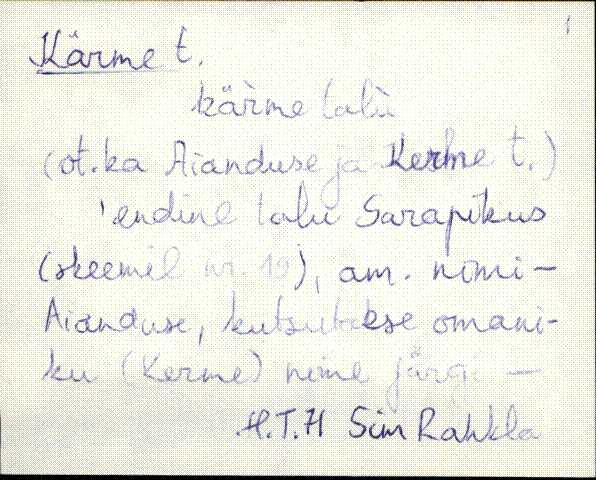 1
Kärme t.
kär̀me talù
(vt. ka Aianduse ja Kerme t.)
'endine talu Sarapikus
(skeemil nr. 19), am. nimi -
Aianduse, kutsutakse omani-
ku (Kerme) nime järgi -
H.T.H Sim Rahkla